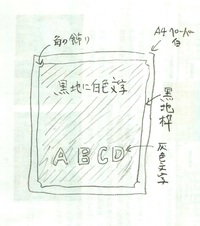 角の飾り
A4 ペーパー
白
黒地に白色文字
黒地枠
ABCD
灰色文字